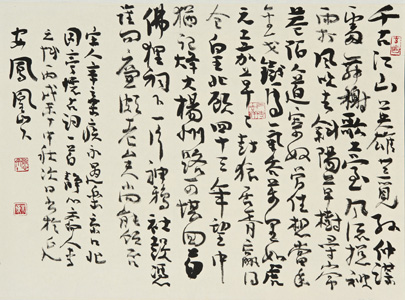 千古江山英雄無覓孫仲謀
處舞榭歌臺風流總被
雨打風吹去斜陽草樹尋常
巷陌人道寄奴曾住想當年
金戈鐵馬氣吞萬里如虎
元嘉草草封狼居胥贏得
倉皇北顧四十三年望中
猶記烽火揚州路可堪回首
佛狸祠下一片神鴉社鼓憑
誰問廉頗老矣尚能飯否
宋人辛棄疾永遇樂京口北
固亭懷古詞一首
丙戌年中秋次日書於
安鳳凰山人